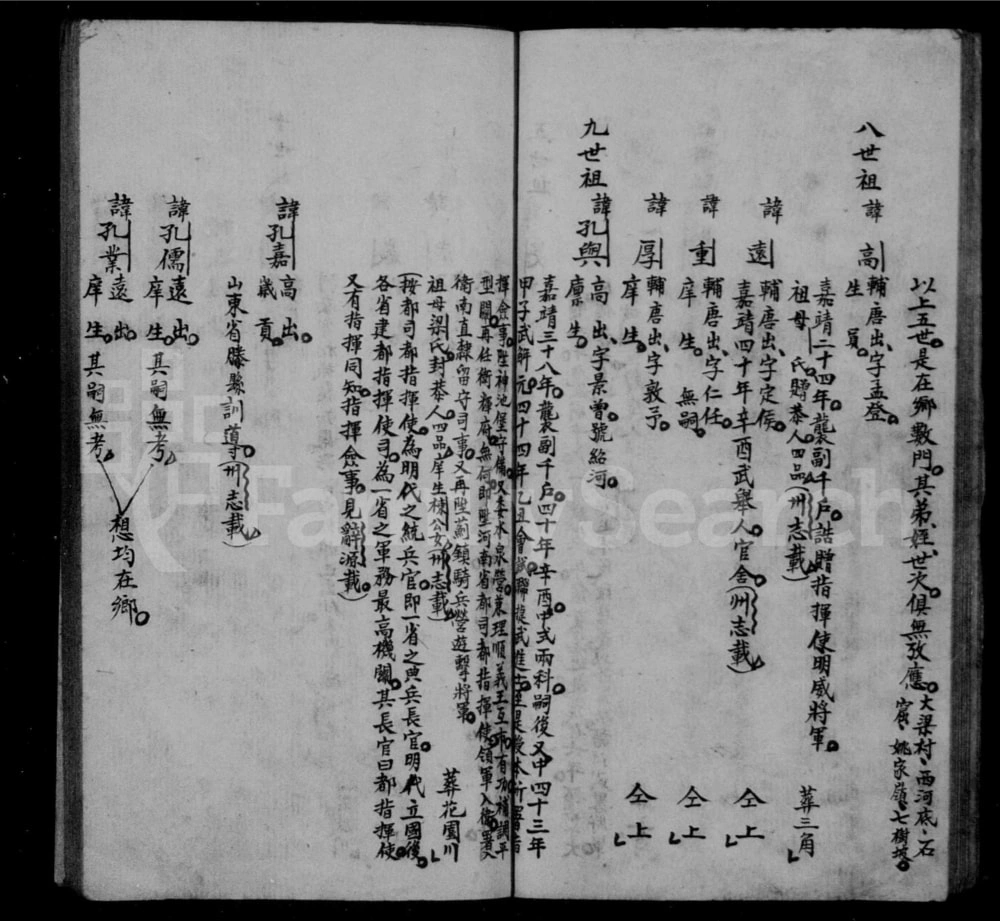 以上五世是在鄉數門其弟姪世次俱無攷應大梁村、西河底、石
窑、姚家嶺、七樹坡
八世祖 諱高 輔唐出、字孟登
生員
嘉靖二十四年襲副千戶誥贈指揮使明威將軍
祖母 氏贈恭人四品(州志載) 葬三角
諱遠 輔唐出、字定侯
嘉靖四十年辛酉武舉人官舍(州志載) 仝上
諱重 輔唐出、字仁任
庠生 無嗣 仝上
諱厚 輔唐出、字敦予
庠生 仝上
九世祖 諱孔與 高出、字景曾號紹河
廩生
嘉靖三十八年襲副千戶四十年辛酉中式兩科嗣後又中四十三年
甲子武解元四十四年乙丑會試聯捷武進士
揮僉事陞神池堡守備又委水泉營兼理順義王互市有功補調平
型關再任衛都府無何即陞河南省都司都指揮使領軍入衛
衛南直隸留守司事又再陞薊鎮騎兵營遊擊將軍
祖母梁氏封恭人四品庠生棟公女(州志載) 葬花園川
(按都司都指揮使為明代之統兵官即一省之典兵長官明代立國後
各省建都指揮使司為一省之軍務最高機關其長官曰都指揮使
又有指揮同知指揮僉事見辭源載)
諱孔嘉 高出
歲貢
山東省滕縣訓導(州志載)
諱孔儒 遠出
庠生其嗣無考
諱孔業 遠出
庠生其嗣無考
想均在鄉
FamilySearch